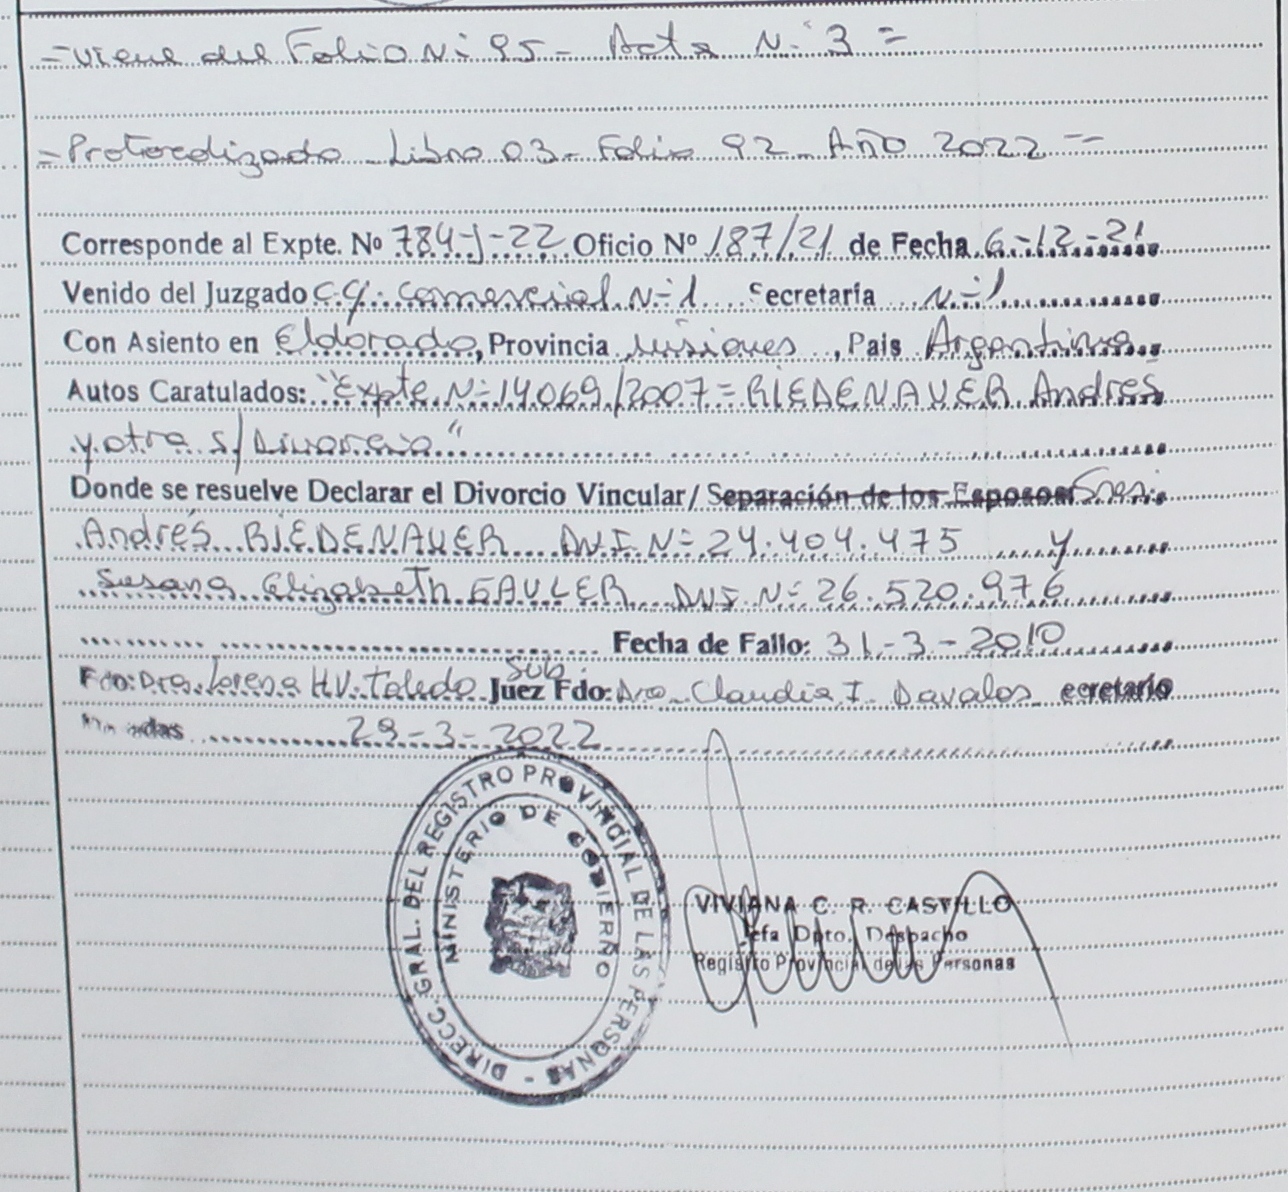 = Viene del Folio Nº 95 - Acta Nº 3 =
= Protocolizado Libro 03 - Folio 92 Año 2022 =
Corresponde al Expte. Nº 784-J-22 Oficio Nº 187/21 de Fecha 6-12-21
Venido del Juzgado C.y. Comercial Nº 1 Secretaría Nº 1
Con Asiento en Eldorado, Provincia Misiones, Pais Argentina
Autos Caratulados: "Expte Nº 14.069/2007 = RIEDENAUER Andrés
y otra s/ Divorcio"
Donde se resuelve Declarar el Divorcio Vincular/ Separación de los Esposos Sres:
Andrés RIEDENAUER DNI Nº 24.404.475 y
Susana Elizabeth GAULER DNI Nº 26.520.976
Fecha de Fallo: 31-3-2010
Fdo: Dra. Lorena H.V. Toledo Juez Sub. Fdo: Dra. Claudia I. Davalos ecretario
29-3-2022
DIRECC. GRAL. DEL REGISTRO PROVINCIAL DE LAS PERSONAS -
MINISTERIO DE GOBIERNO
VIVIANA C. R. CASTILLO
Jefa Dpto. Despacho
Registro Provincial de las Personas